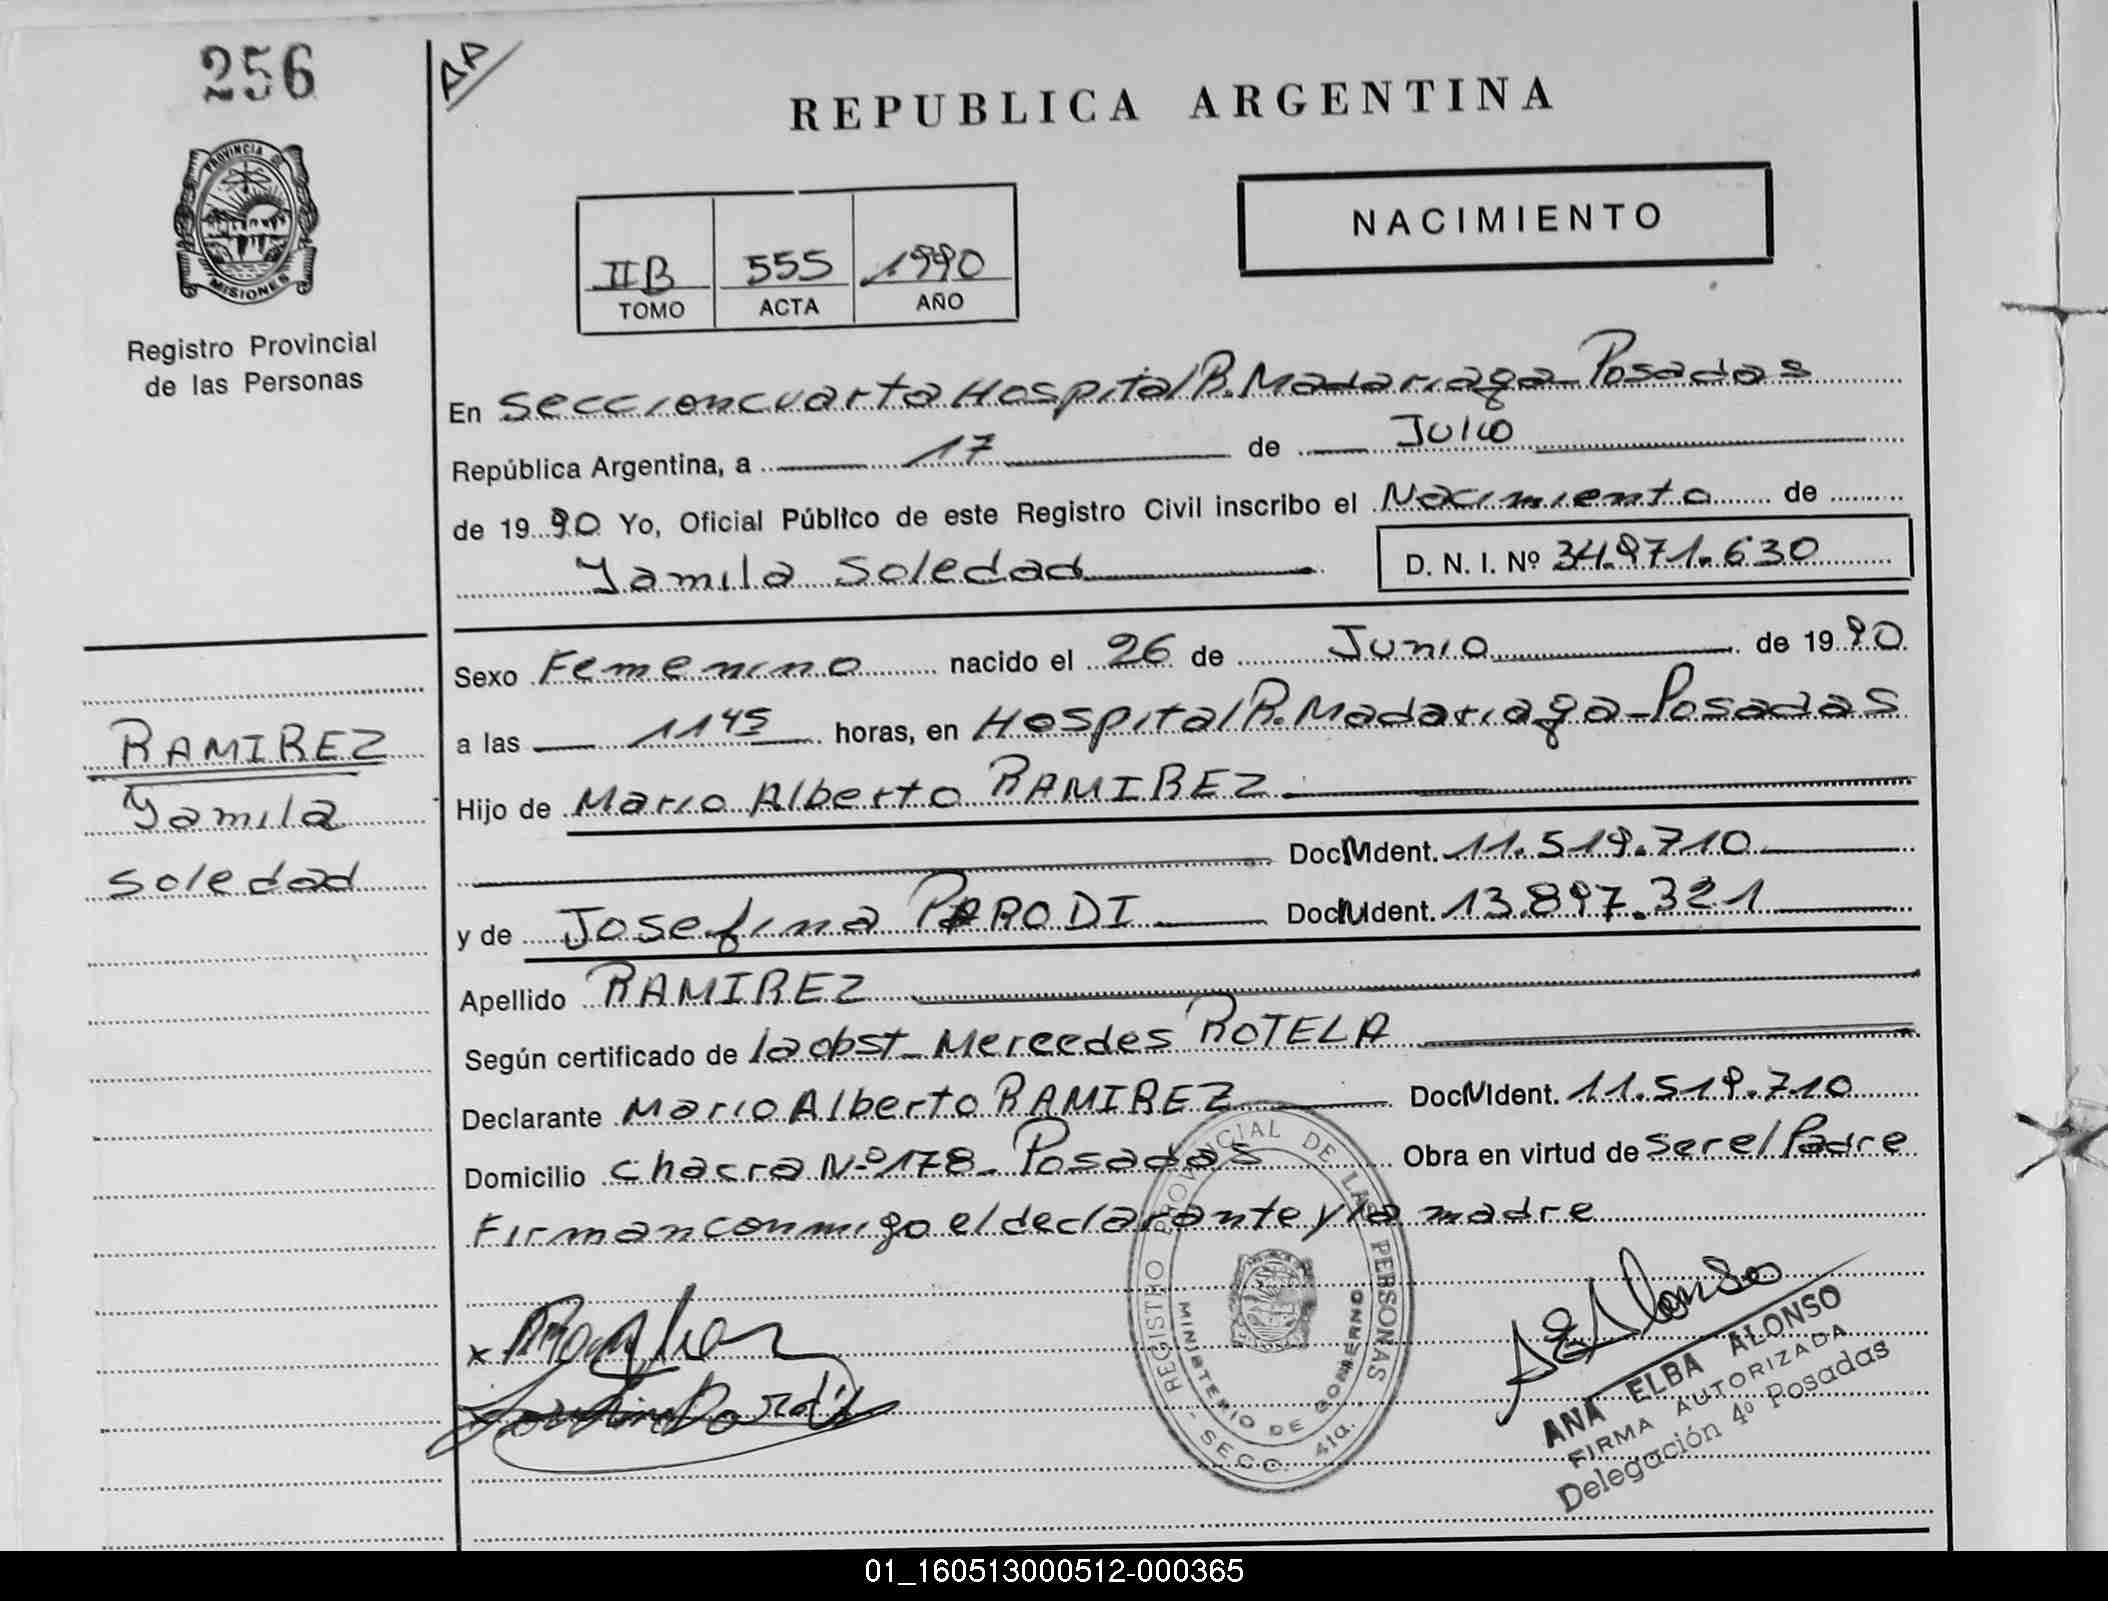 256
AP
REPUBLICA ARGENTINA
NACIMIENTO
IIB 555 1990
TOMO ACTA AÑO
PROVINCIA DE MISIONES
Registro Provincial
de las Personas
En Seccion cuarta Hospital R. Madariaga - Posadas
República Argentina, a 17 de Julio
de 1990 Yo, Oficial Público de este Registro Civil inscribo el Nacimiento de
Yamila Soledad D. N. I. Nº 34.971.630
Sexo Femenino nacido el 26 de Junio de 1990
a las 11 45 horas, en Hospital R. Madariaga - Posadas
RAMIREZ
Yamila
Soledad
Hijo de Mario Alberto RAMIREZ
Doc M Ident. 11.519.710
y de Josefina PARODI Doc M Ident. 13.897.321
Apellido RAMIREZ
Según certificado de la obst. Mercedes ROTELA
Declarante Mario Alberto RAMIREZ Doc M Ident. 11.519.710
Domicilio Chacra Nº 178 - Posadas Obra en virtud de ser el Padre
Firman conmigo el declarante y la madre
REGISTRO PROVINCIAL DE LAS PERSONAS
MINISTERIO DE GOBIERNO
- SECC. 4ta.
A E Alonso
ANA ELBA ALONSO
FIRMA AUTORIZADA
Delegación 4º Posadas
01_160513000512-000365